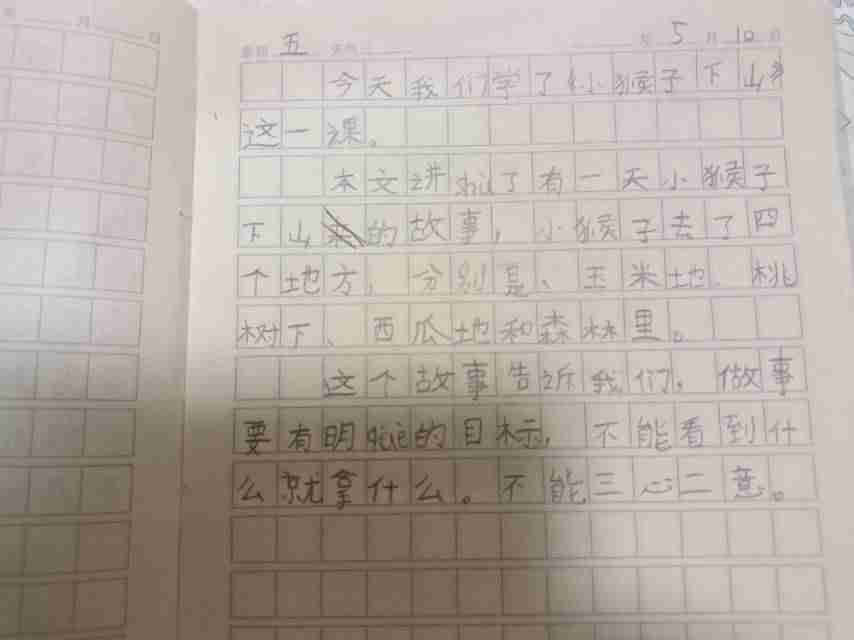 月 日
星期 五 天气 年 5 月 10 日
今天我们学了《小猴子下山》
这一课。
本文讲shù了有一天小猴子
下山的故事，小猴子去了四
个地方，分别是、玉米地、桃
树下、西瓜地和森林里。
这个故事告诉我们，做事
要有明què的目标，不能看到什
么就拿什么。不能三心二意。